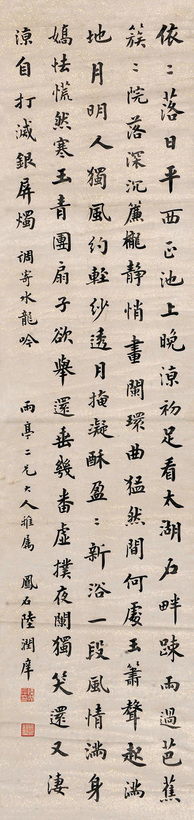 依〻落日平西正池上晚涼初足看太湖石畔踈雨過芭蕉
簇〻院落深沉簾櫳靜悄畫闌環曲猛然間何處玉簫聲起滿
地月明人獨風約輕紗透月掩凝酥盈〻新浴一段風情滿身
嬌怯慌然寒玉青團扇子欲舉還垂幾番虛撲夜闌獨笑還又淒
涼自打滅銀屏燭 調寄水龍吟
雨亭二兄大人雅屬 鳳石陸潤庠